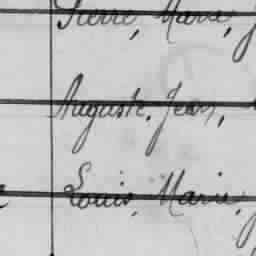 Pierre, Marie,
Auguste, Jean,
Louis, Marie,